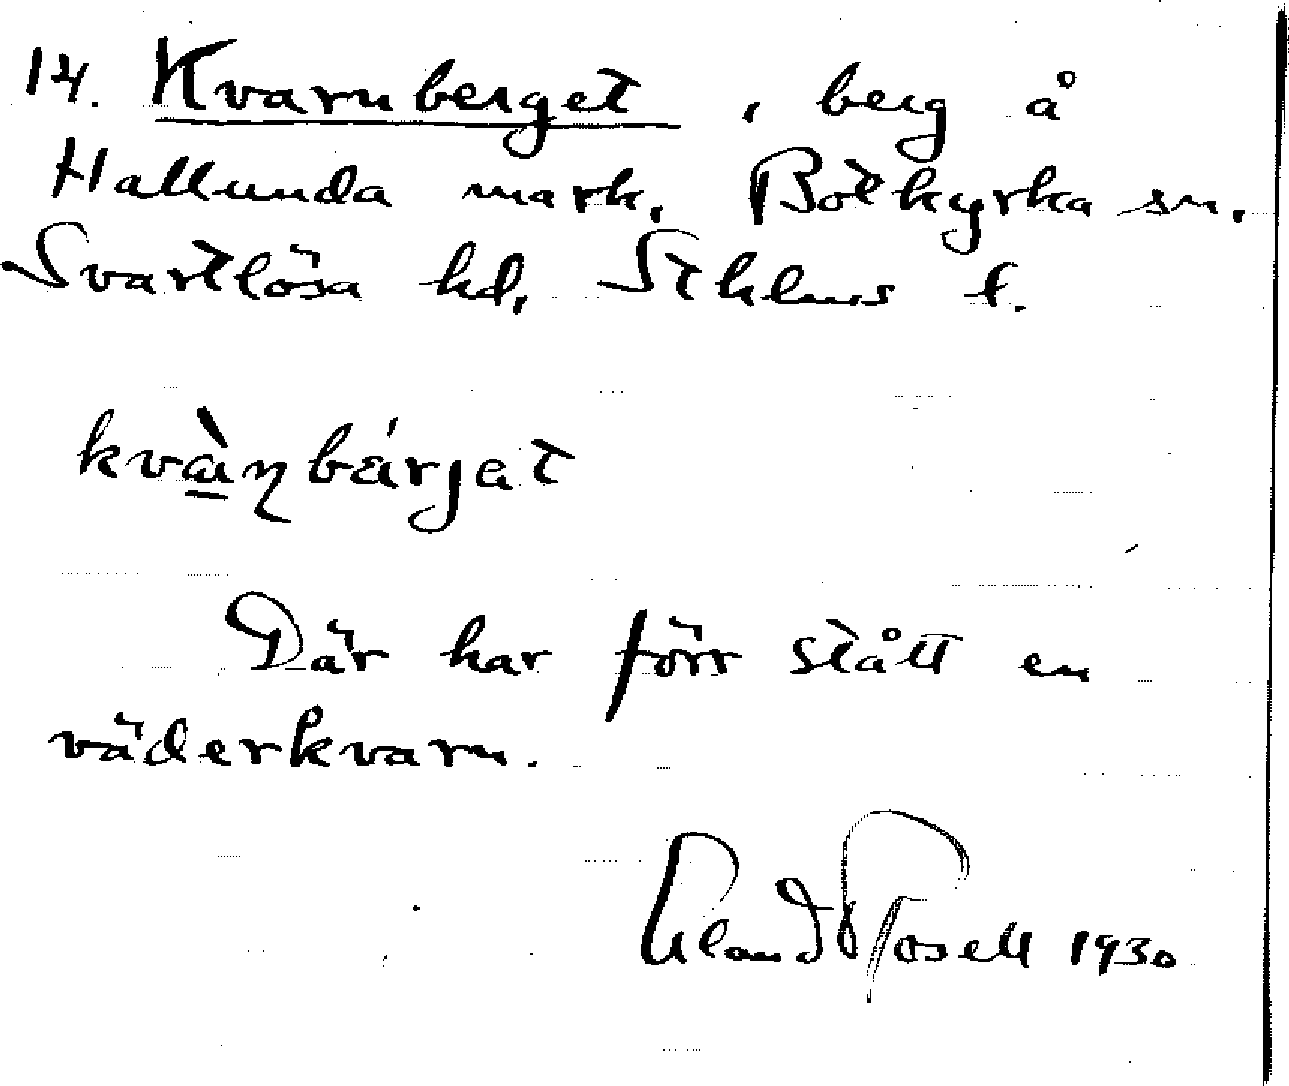 14. Kvarnberget, berg å
Hallunda mark, Botkyrka sn.
Svartlösa hd, Sthlms l.
kvàɳbárjat
Där har förr stått en
väderkvarn.
Erland Rosell 1930